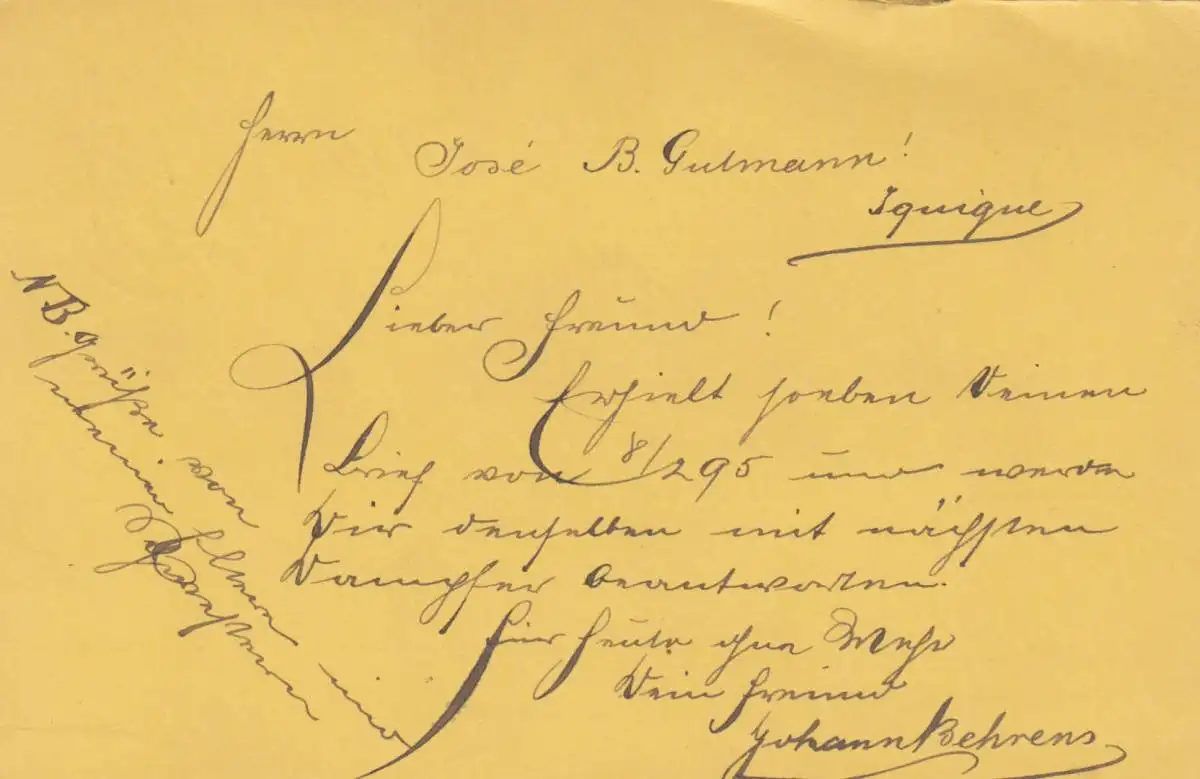 Herrn
José B. Gutmann!
Iquique
Lieber Freund!
Erhielt soeben Deinen
Brief von 8/295 und werde
Dir denselben mit nächsten
Dampfer beantworten.
Für heute ohne Mehr
Dein Freund
Johann Behrens
NB. Grüße von Eltern und
meinen Schwestern